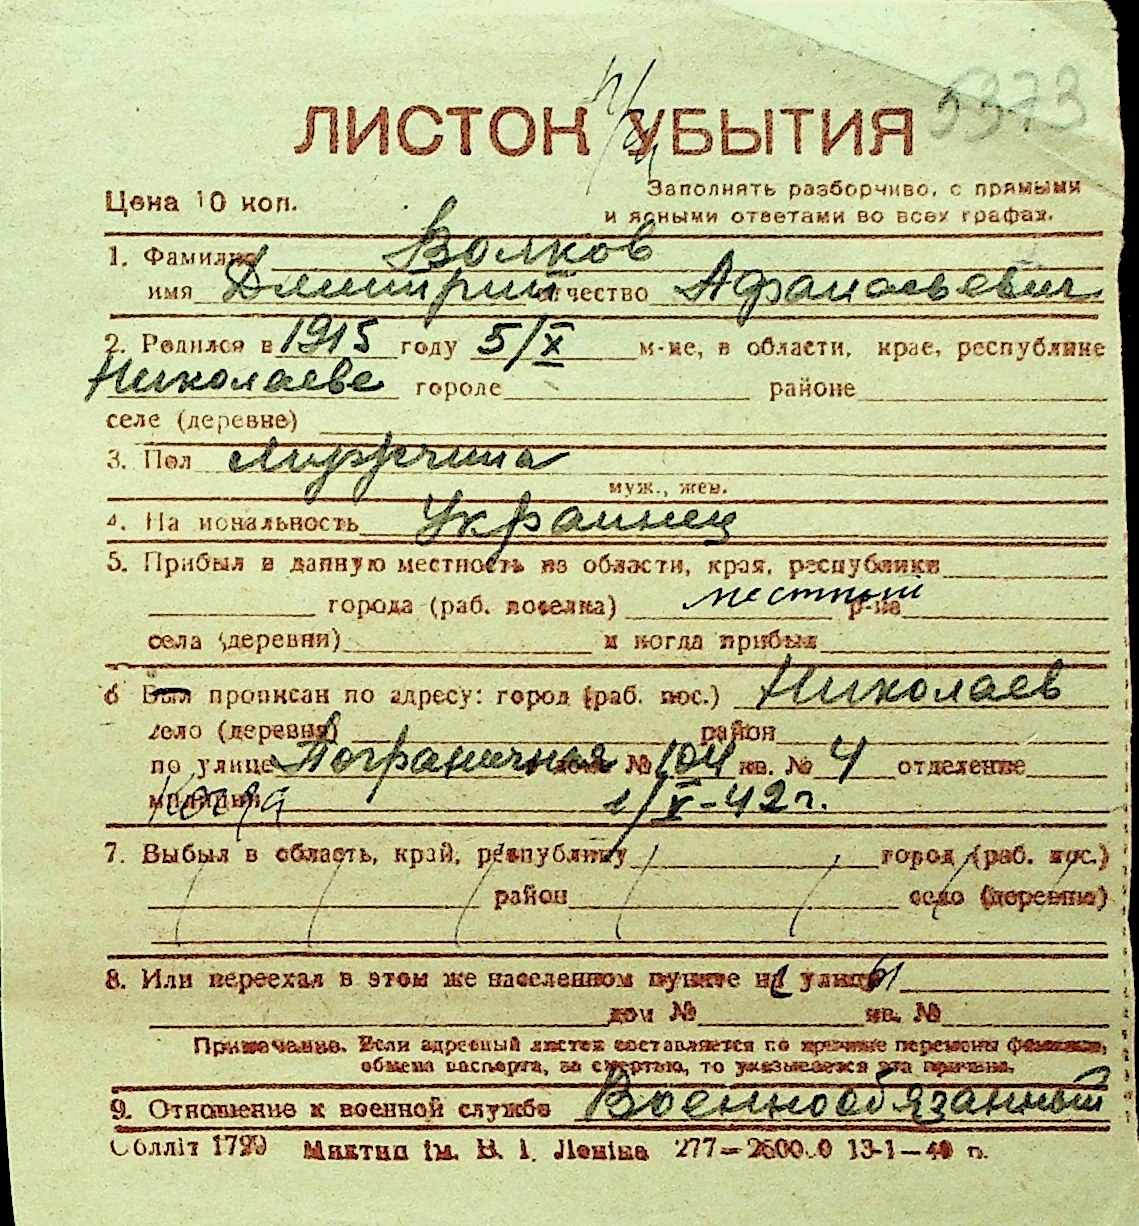 5373
ЛИСТОК УБЫТИЯ
Цена 10 коп.
Заполнять разборчиво, с прямыми
и ясными ответами во всех графах.
1. Фамилия Волков
имя Дмитрий отчество Афанасьевич
2. Родился в 1915 году 5/X м-це, в области, крае, республике
Николаеве городе районе
селе (деревне)
3. Пол Мужчина
муж., жен.
4. Национальность Украинец
5. Прибыл в данную местность из области, края, республики
города (раб. поселка) местный р-на
села (деревни) и когда прибыл
6 Был прописан по адресу: город (раб. пос.) Николаев
село (деревня) район
по улице Пограничная дом № 104 кв. № 4 отделение
милиции Когда 1/V-42 г.
7. Выбыл в область, край, республику город (раб. пос.)
район село (деревню)
8. Или переехал в этом же населенном пункте на улицу
дом № кв. №
Примечание. Если адресный листок составляется по причине перемены фамилии,
обмена паспорта, за смертью, то указывается эта причина.
9. Отношение к военной службе Военнообязанный
Облліт 1799 Миктип ім. В. І. Леніна 277— 13-1—40 г.